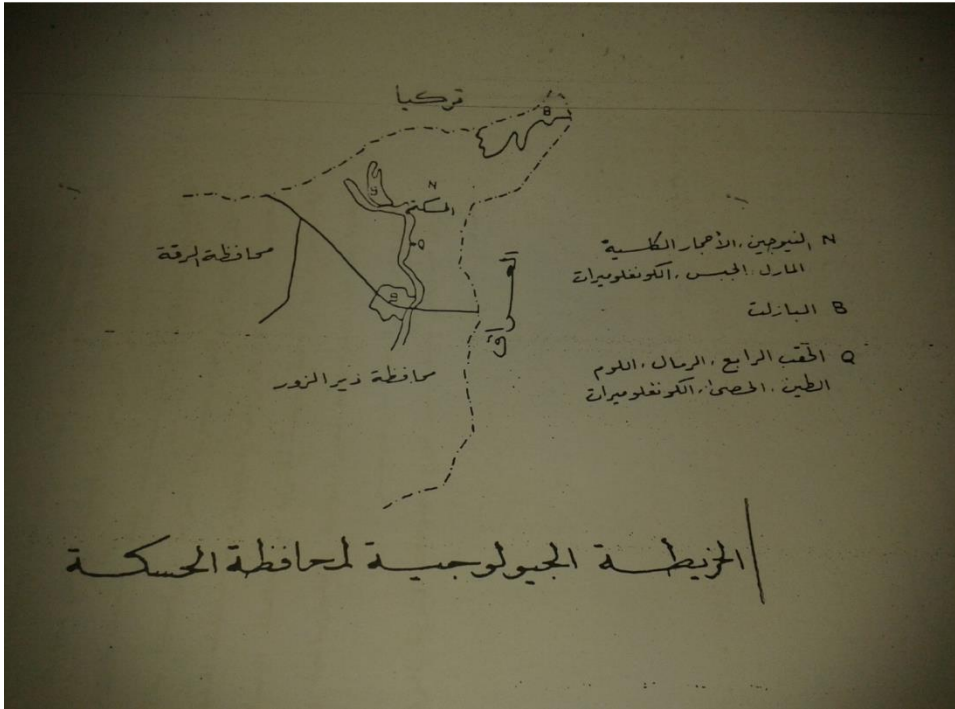 تركيا
B
g
N
الحسكة
Q
محافظة الرقة
العراق
g
محافظة دير الزور
N النيوجين، الأحجار الكلسية
المارل، الجبس، الكونغلوميرات
B البازلت
Q الحقب الرابع، الرمال، اللوم
الطين، الحصى، الكونغلوميرات
الخريطة الجيولوجية لمحافظة الحسكة